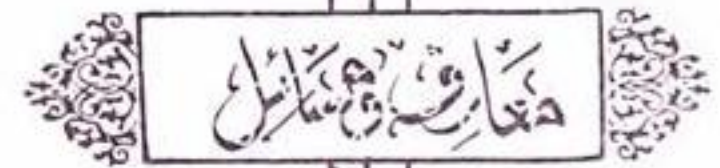 معارف و مسائل